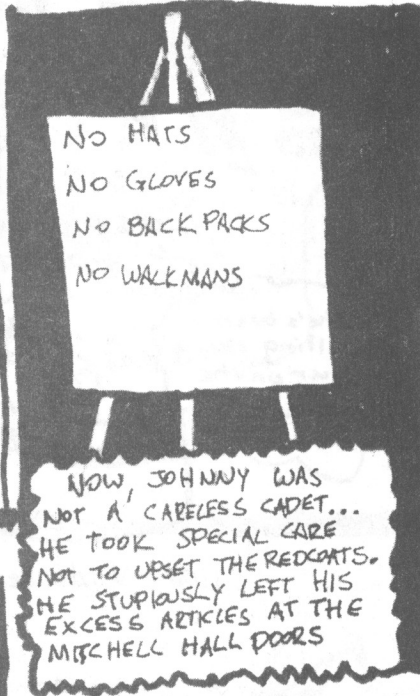 NO HATS
NO GLOVES
NO BACKPACKS
NO WALKMANS
NOW, JOHNNY WAS
NOT A CARELESS CADET...
HE TOOK SPECIAL CARE
NOT TO UPSET THE REDCOATS.
HE STUPIOUSLY LEFT HIS
EXCESS ARTICLES AT THE
MITCHELL HALL DOORS